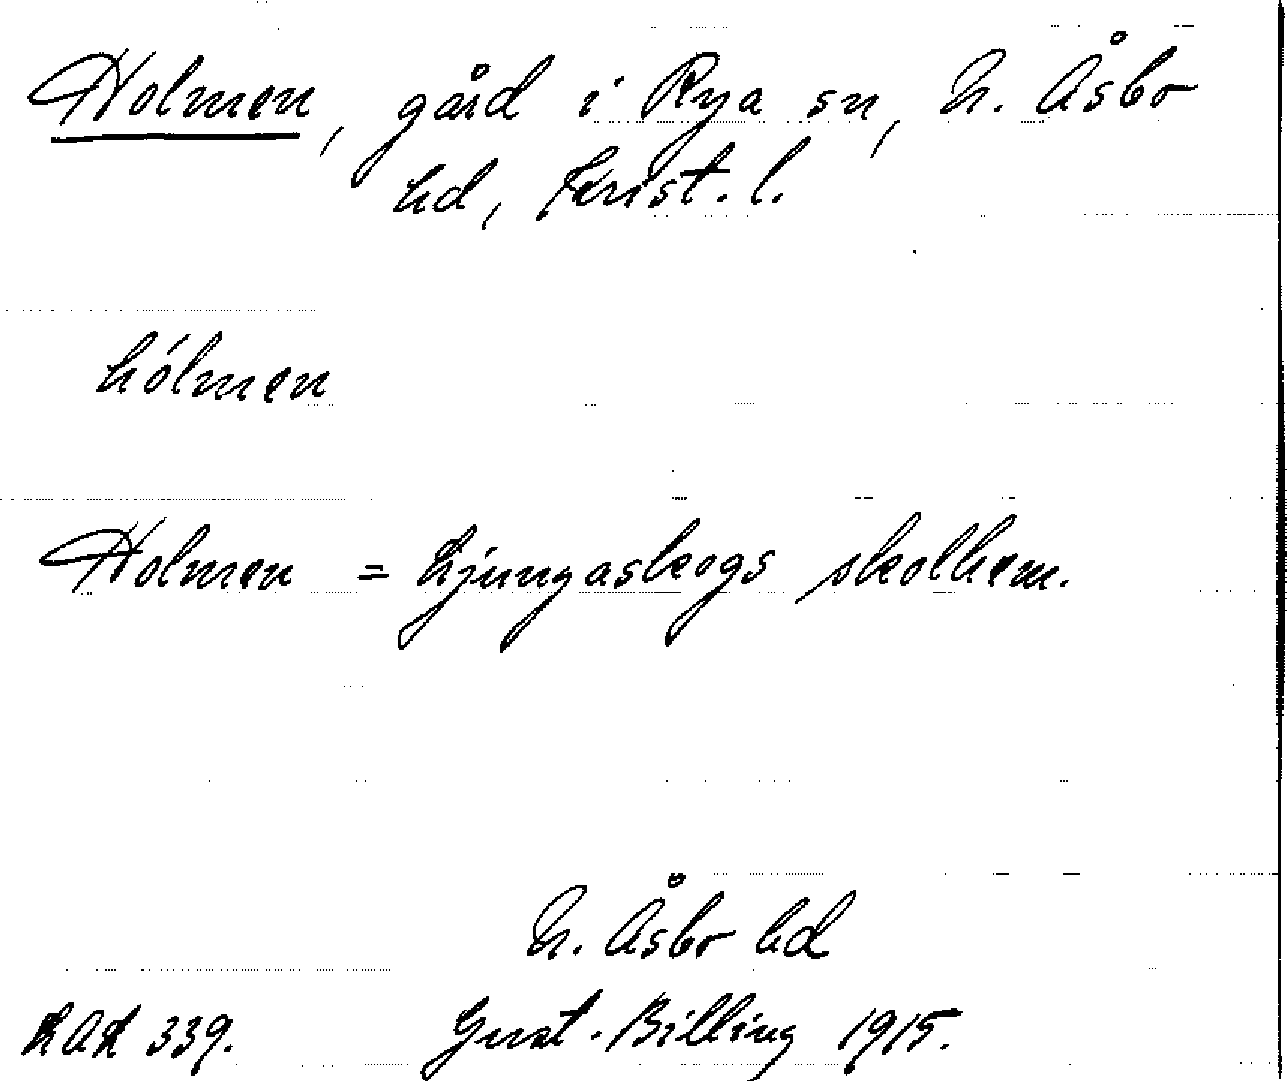 Holmen, gård i Rya sn, N. Åsbo
hd, Krist. l.
hólmen
Holmen = Ljungaskogs skolhem.
N. Åsbo hd
LAL 339. Gust. Billing 1915.